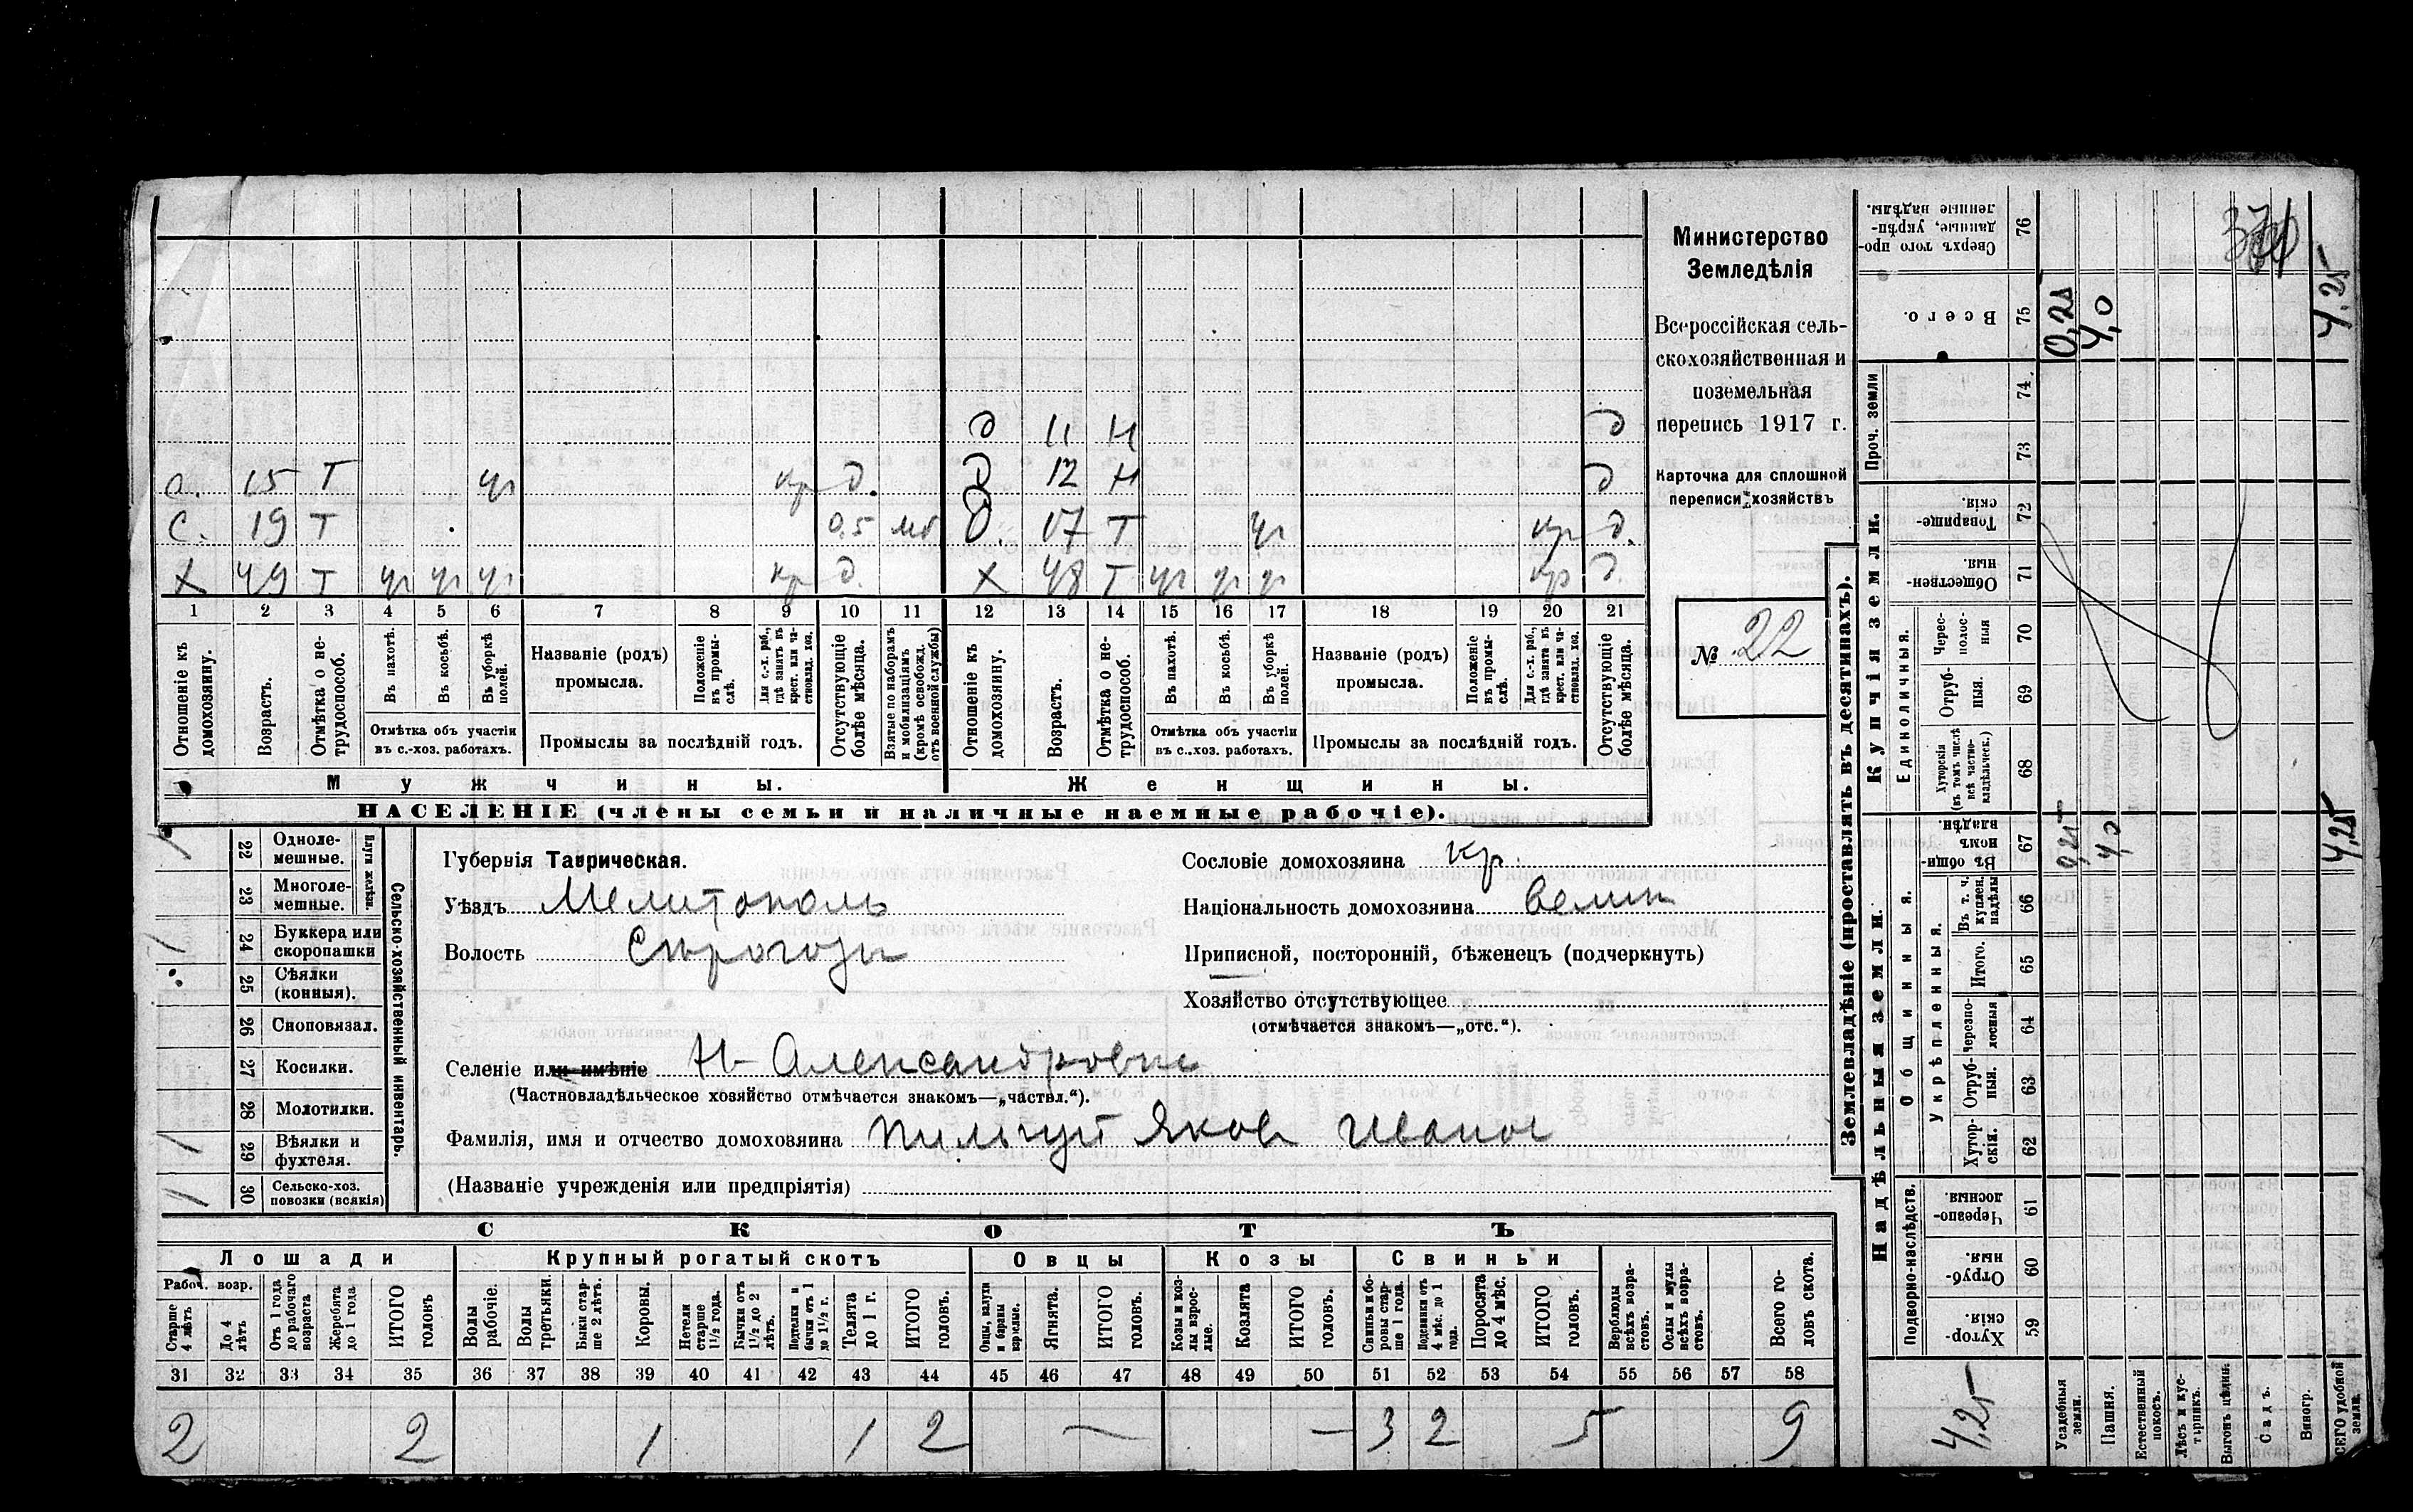 д 11 Н д
с. 15 Т уч кр д. д 12 Н д
с. 19 Т 0,5 мб д. 17 Т уч кр д.
х 49 Т уч уч уч кр д. х 48 Т уч уч уч кр д.
1 2 3 4 5 6 7 8 9 10 11 12 13 14 15 16 17 18 19 20 21
Отношеніе къ домохозяину.
Возрастъ.
Отмѣтка о не-трудоспособ.
Въ пахотѣ.
Въ косьбѣ.
Въ уборкѣ полей.
Отмѣтка объ участіи
въ с.-хоз. работахъ.
Названіе (родъ)
промысла.
Положеніе въ промы-слѣ.
Для с.-х. раб., гдѣ занятъ въ крест. или ча-стновлад. хоз.
Промыслы за послѣдній годъ.
Отсутствующіе болѣе мѣсяца.
Взятые по наборамъ и мобилизаціямъ (кромѣ освобожд. отъ военной службы)
Отношеніе къ домохозяину.
Возрастъ.
Отмѣтка о не-трудоспособ.
Въ пахотѣ.
Въ косьбѣ.
Въ уборкѣ полей.
Отмѣтка объ участіи
въ с.-хоз. работахъ.
Названіе (родъ)
промысла.
Положеніе въ промы-слѣ.
Для с.-х. раб., гдѣ занята въ крест. или ча-стновлад. хоз.
Промыслы за послѣдній годъ.
Отсутствующіе болѣе мѣсяца.
Мужчины. Женщины.
НАСЕЛЕНІЕ (члены семьи и наличные наемные рабочіе).
Министерство
Земледѣлія
Всероссійская сель-
скохозяйственная и
поземельная
перепись 1917 г.
Карточка для сплошной
переписи хозяйствъ
№ 22
Сельско-хозяйственный инвентарь.
Плуги желѣзн.
22 Одноле-мешные. 1
23 Многоле-мешные.
24 Буккера или скоропашки 1
25 Сѣялки (конныя).
26 Сноповязал.
27 Косилки.
28 Молотилки.
29 Вѣялки и фухтеля. 1
30 Сельско-хоз. повозки (всякія) 1
Губернія Таврическая.
Уѣздъ Мелитополь
Волость Сѣрогозы
Сословіе домохозяина кр.
Національность домохозяина велик
Приписной, посторонній, бѣженецъ (подчеркнуть)
Хозяйство отсутствующее
(отмѣчается знакомъ—„отс.“).
Селеніе или имѣніе Н-Александровка
(Частновладѣльческое хозяйство отмѣчается знакомъ—„частвл.“).
Фамилія, имя и отчество домохозяина Пильгуй Яков Иванов
(Названіе учрежденія или предпріятія)
СКОТЪ
Лошади Крупный рогатый скотъ Овцы Козы Свиньи
Рабоч. возр.
Старше 4 лѣтъ
До 4 лѣтъ
Отъ 1 года до рабочаго возраста
Жеребята до 1 года
ИТОГО головъ
Волы рабочіе.
Волы третьяки.
Быки стар-ше 2 лѣтъ.
Коровы.
Нетели старше 1½ года.
Бычки отъ 1½ до 2 лѣтъ.
Подтелки и бычки отъ 1 до 1½ г.
Телята до 1 г.
ИТОГО головъ.
Овцы, валухи и бараны взрослые.
Ягнята.
ИТОГО головъ.
Козы и коз-лы взрос-лые.
Козлята
ИТОГО головъ.
Свиньи и бо-ровы стар-ше 1 года.
Подсвинки отъ 4 мѣс. до 1 года.
Поросята до 4 мѣс.
ИТОГО головъ.
Верблюды всѣхъ возра-стовъ.
Ослы и мулы всѣхъ возра-стовъ.
Всего го-ловъ скота.
31 32 33 34 35 36 37 38 39 40 41 42 43 44 45 46 47 48 49 50 51 52 53 54 55 56 57 58
2 2 1 1 2 — — 3 2 5 9
Землевладѣніе (проставлять въ десятинахъ).
Надѣльныя земли.
Купчія земли.
Проч. земли
Подворно-наслѣдств.
Общинныя.
Укрѣпленныя.
Единоличныя.
59 Хутор-скія.
60 Отруб-ныя.
61 Черезпо-лосныя.
62 Хутор-скія.
63 Отруб-ныя.
64 Черезпо-лосныя
65 Итого.
66 Въ т. ч. куплен. надѣлы
67 Въ общи-номъ владѣн.
68 Хуторскія (въ томъ числѣ всѣ частно-владѣльческ.)
69 Отруб-ныя.
70 Черес-полос-ныя
71 Обществен-ныя.
72 Товарище-скія.
73
74
75 Всего.
76 Сверхъ того про-данные, укрѣп-ленные надѣлы.
0,25 4,0 4,25
0,25 4,0 4,25
4,25
Усадебныя земли.
Пашня.
Естественный покосъ.
Лѣсъ и кус-тарникъ.
Выгонъ цѣлин.
Садъ.
Виногр.
ВСЕГО удобной земли.